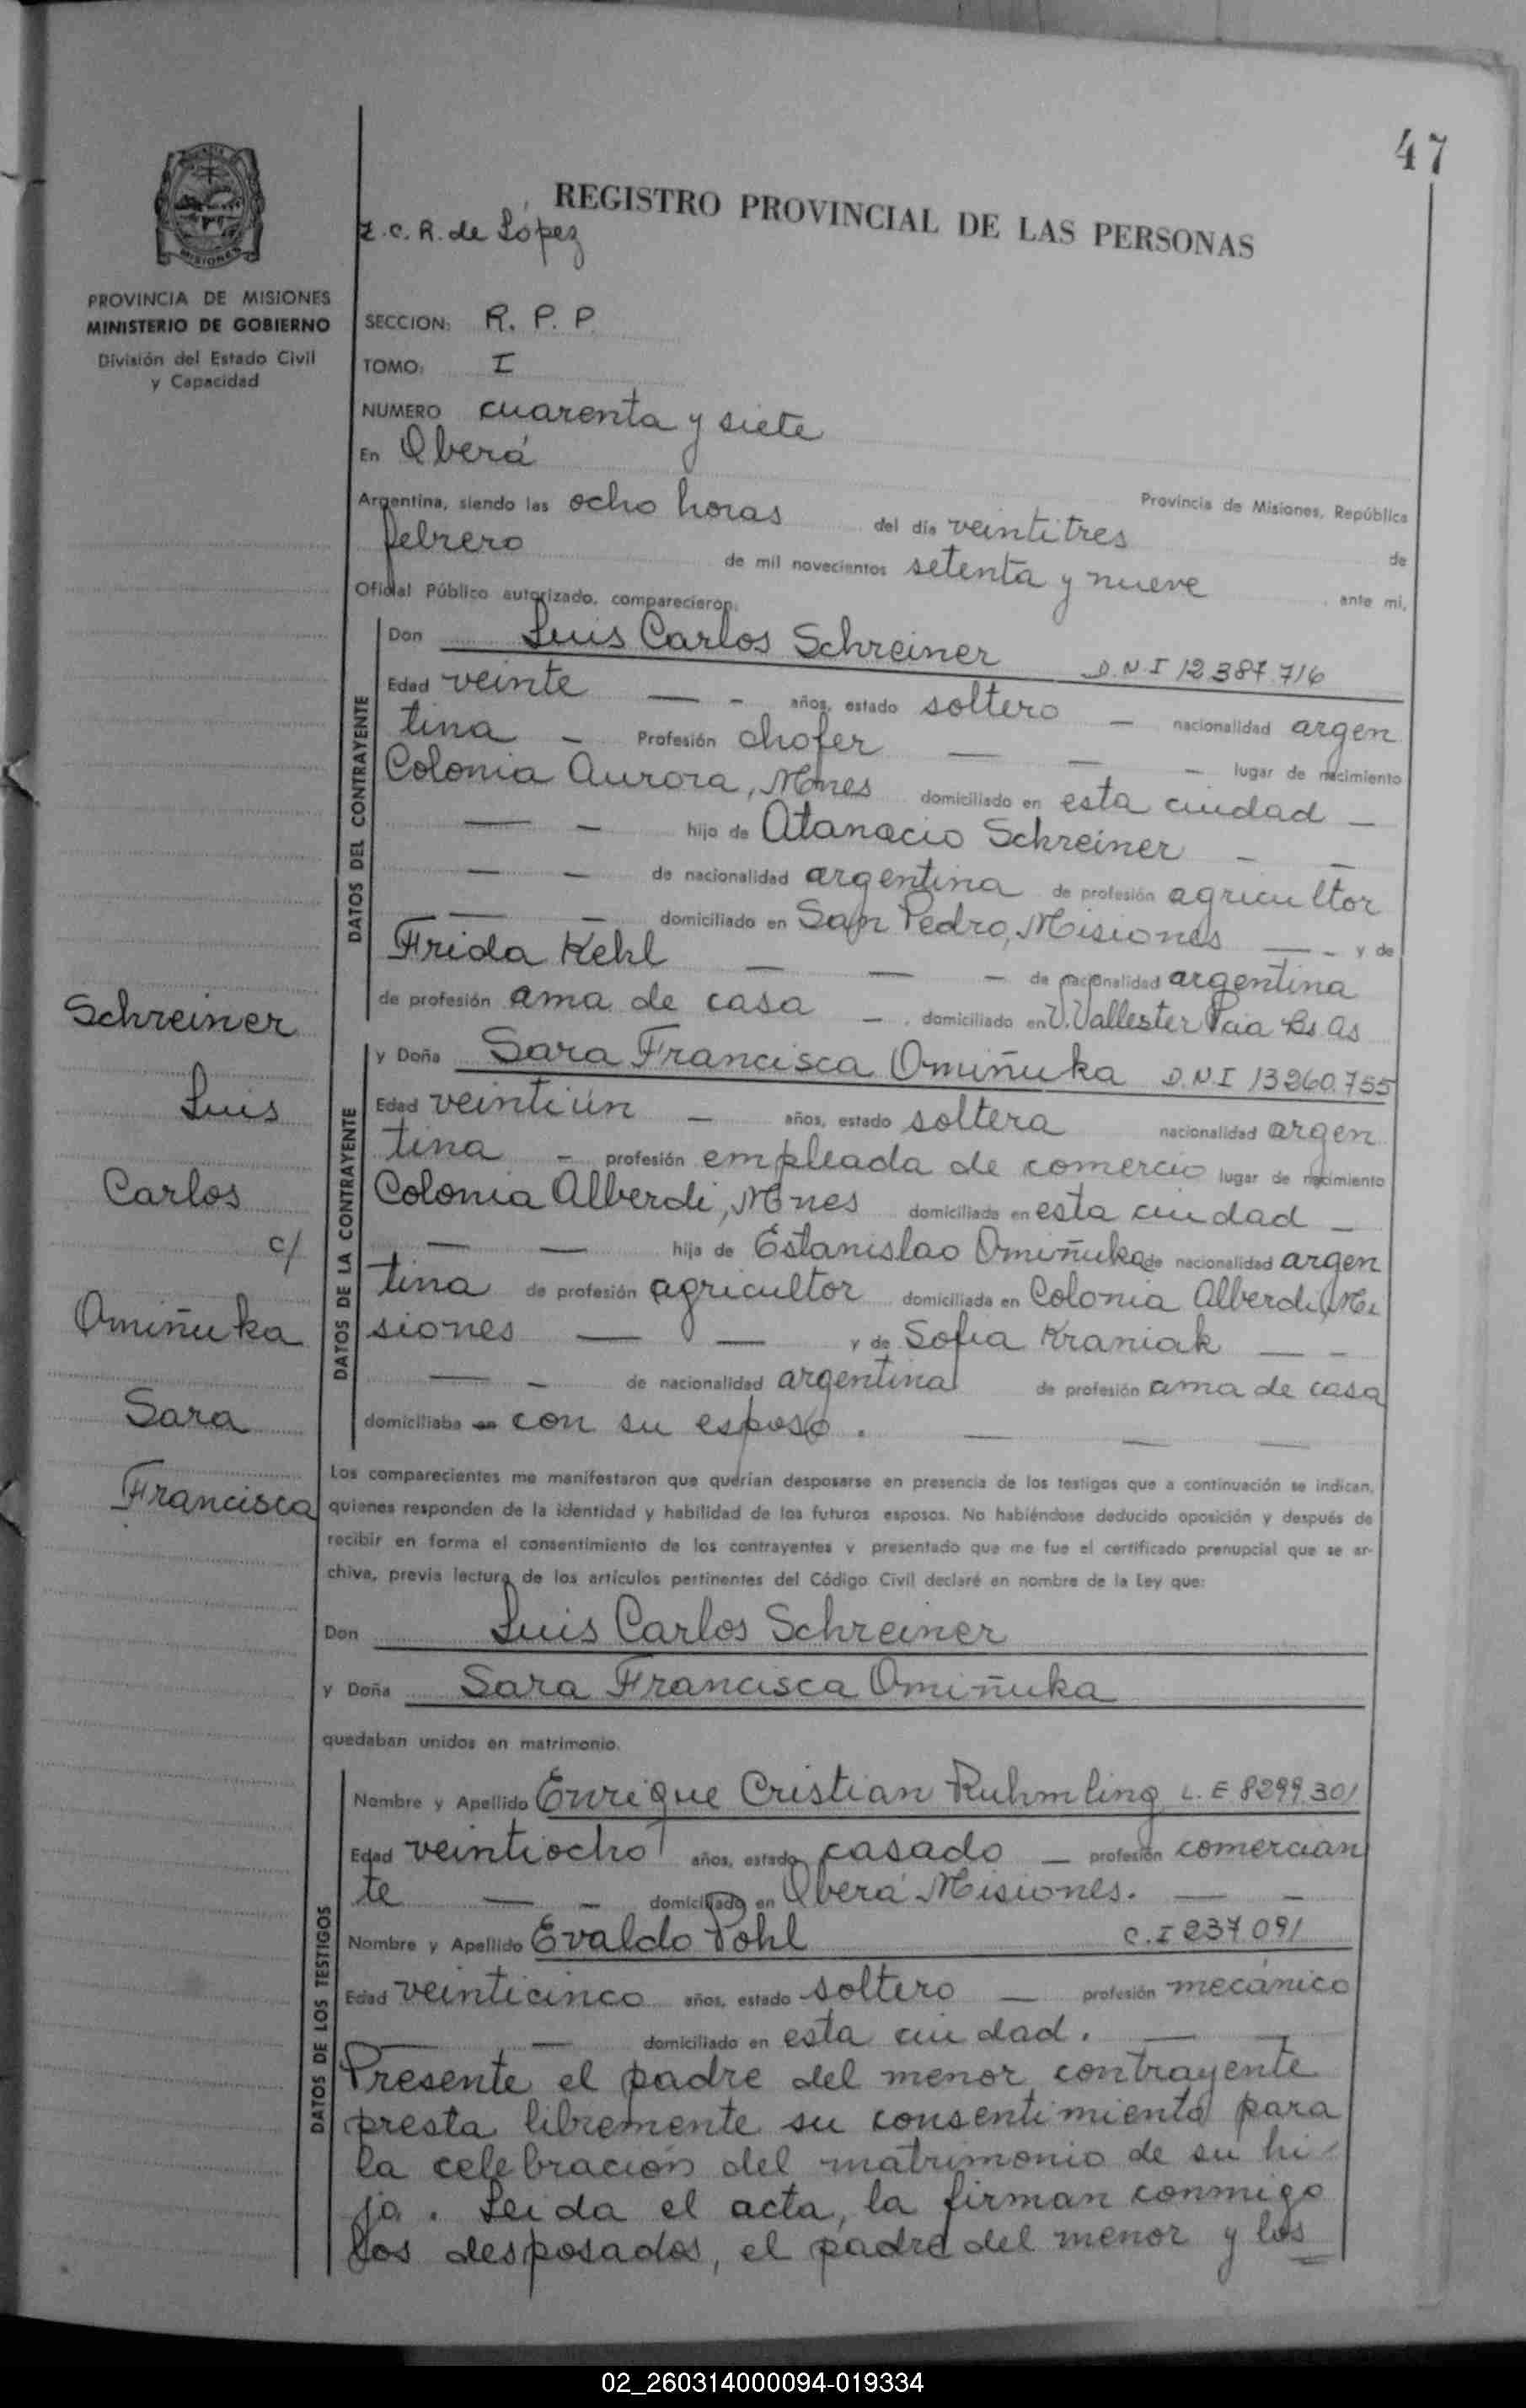 47
REGISTRO PROVINCIAL DE LAS PERSONAS
Z.C.R. de López
MISIONES
PROVINCIA DE MISIONES
MINISTERIO DE GOBIERNO
División del Estado Civil
y Capacidad
SECCION: R. P. P.
TOMO: I
NUMERO cuarenta y siete
En Oberá
Provincia de Misiones, República
Argentina, siendo las ocho horas del día veintitres de
febrero de mil novecientos setenta y nueve ante mi,
Oficial Público autorizado, comparecieron:
DATOS DEL CONTRAYENTE
Don Luis Carlos Schreiner D.N.I 12.387.716
Edad veinte — - años, estado soltero — nacionalidad argen
tina - Profesión chofer — — — lugar de nacimiento
Colonia Aurora, Mnes domiciliado en esta ciudad —
— - hijo de Atanacio Schreiner - —
— - de nacionalidad argentina de profesión agricultor
— - domiciliado en San Pedro, Misiones — - y de
Frida Kehl — — - de nacionalidad argentina
de profesión ama de casa — . domiciliado en V. Vallester Pcia Bs As
DATOS DE LA CONTRAYENTE
y Doña Sara Francisca Omiñuka D.N.I 13260.755
Edad veintiún — años, estado soltera nacionalidad argen
tina - profesión empleada de comercio lugar de nacimiento
Colonia Alberdi, Mnes domiciliada en esta ciudad —
— — hija de Estanislao Omiñuka de nacionalidad argen
tina de profesión agricultor domiciliada en Colonia Alberdi, Mi
siones — — y de Sofia Kraniak — -
— - de nacionalidad argentina de profesión ama de casa
domiciliaba en con su esposo. — — —
Schreiner
Luis
Carlos
c/
Omiñuka
Sara
Francisca
Los comparecientes me manifestaron que querían desposarse en presencia de los testigos que a continuación se indican,
quienes responden de la identidad y habilidad de los futuros esposos. No habiéndose deducido oposición y después de
recibir en forma el consentimiento de los contrayentes y presentado que me fue el certificado prenupcial que se ar-
chiva, previa lectura de los artículos pertinentes del Código Civil declaré en nombre de la Ley que:
Don Luis Carlos Schreiner
y Doña Sara Francisca Omiñuka
quedaban unidos en matrimonio.
DATOS DE LOS TESTIGOS
Nombre y Apellido Enrique Cristian Ruhmling L.E 8299.301
Edad veintiocho años, estado casado — profesión comercian
te — - domiciliado en Oberá Misiones. — -
Nombre y Apellido Evaldo Pohl C.I 237.091
Edad veinticinco años, estado soltero — profesión mecánico
— — domiciliado en esta ciudad. — —
Presente el padre del menor contrayente
presta libremente su consentimiento para
la celebración del matrimonio de su hi-
jo. Leida el acta, la firman conmigo
los desposados, el padre del menor y los
02_260314000094-019334